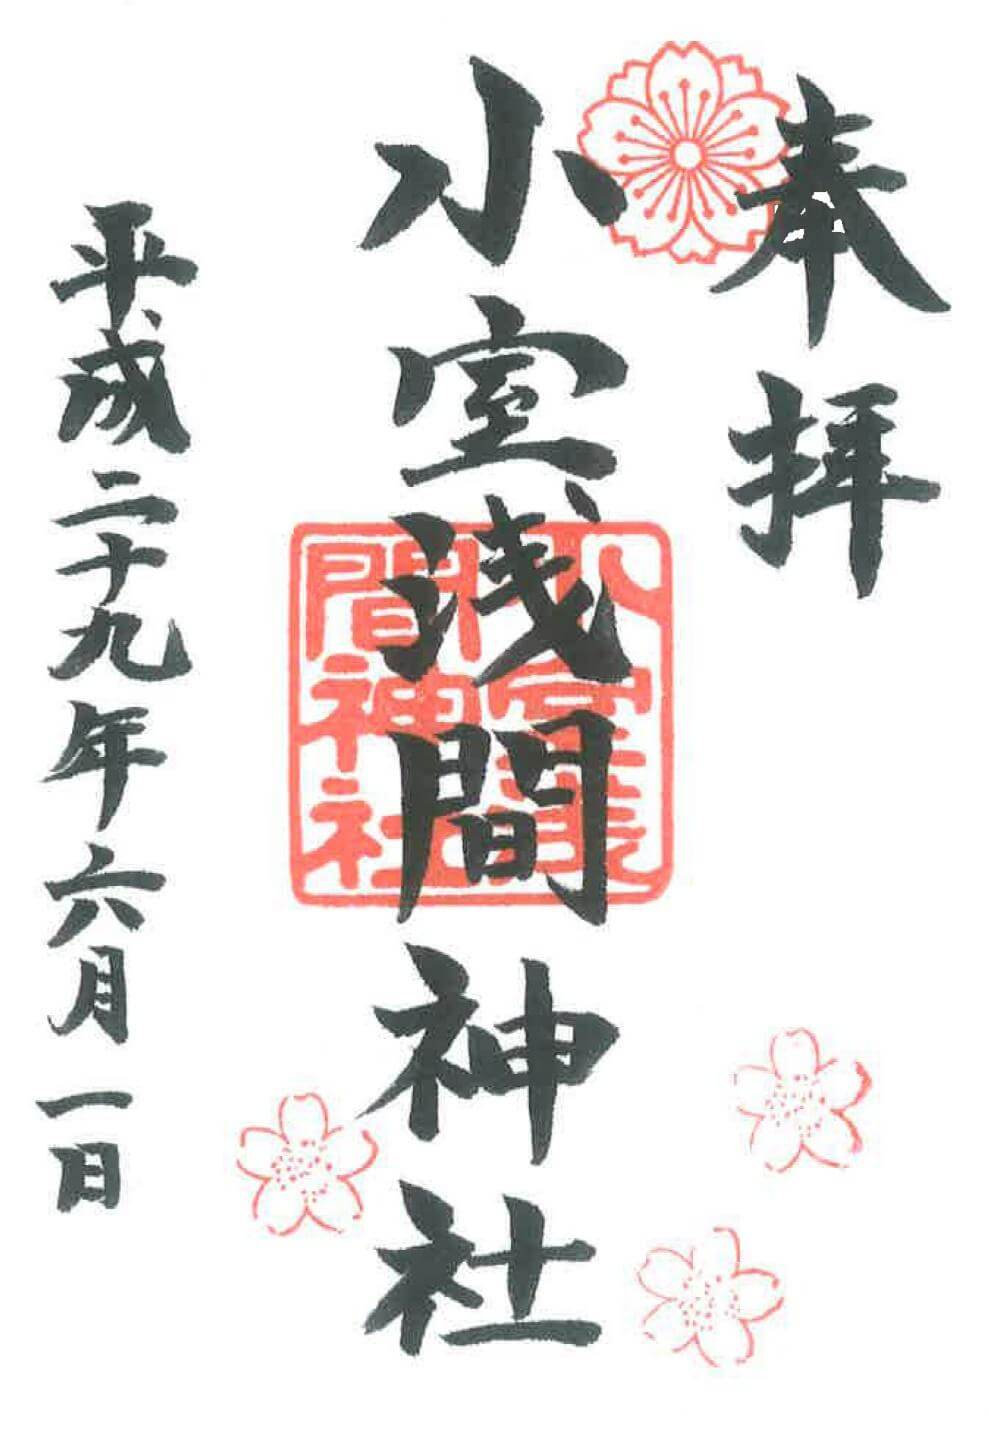 奉拝
小室浅間神社
小室浅
間神社
平成二十九年六月一日